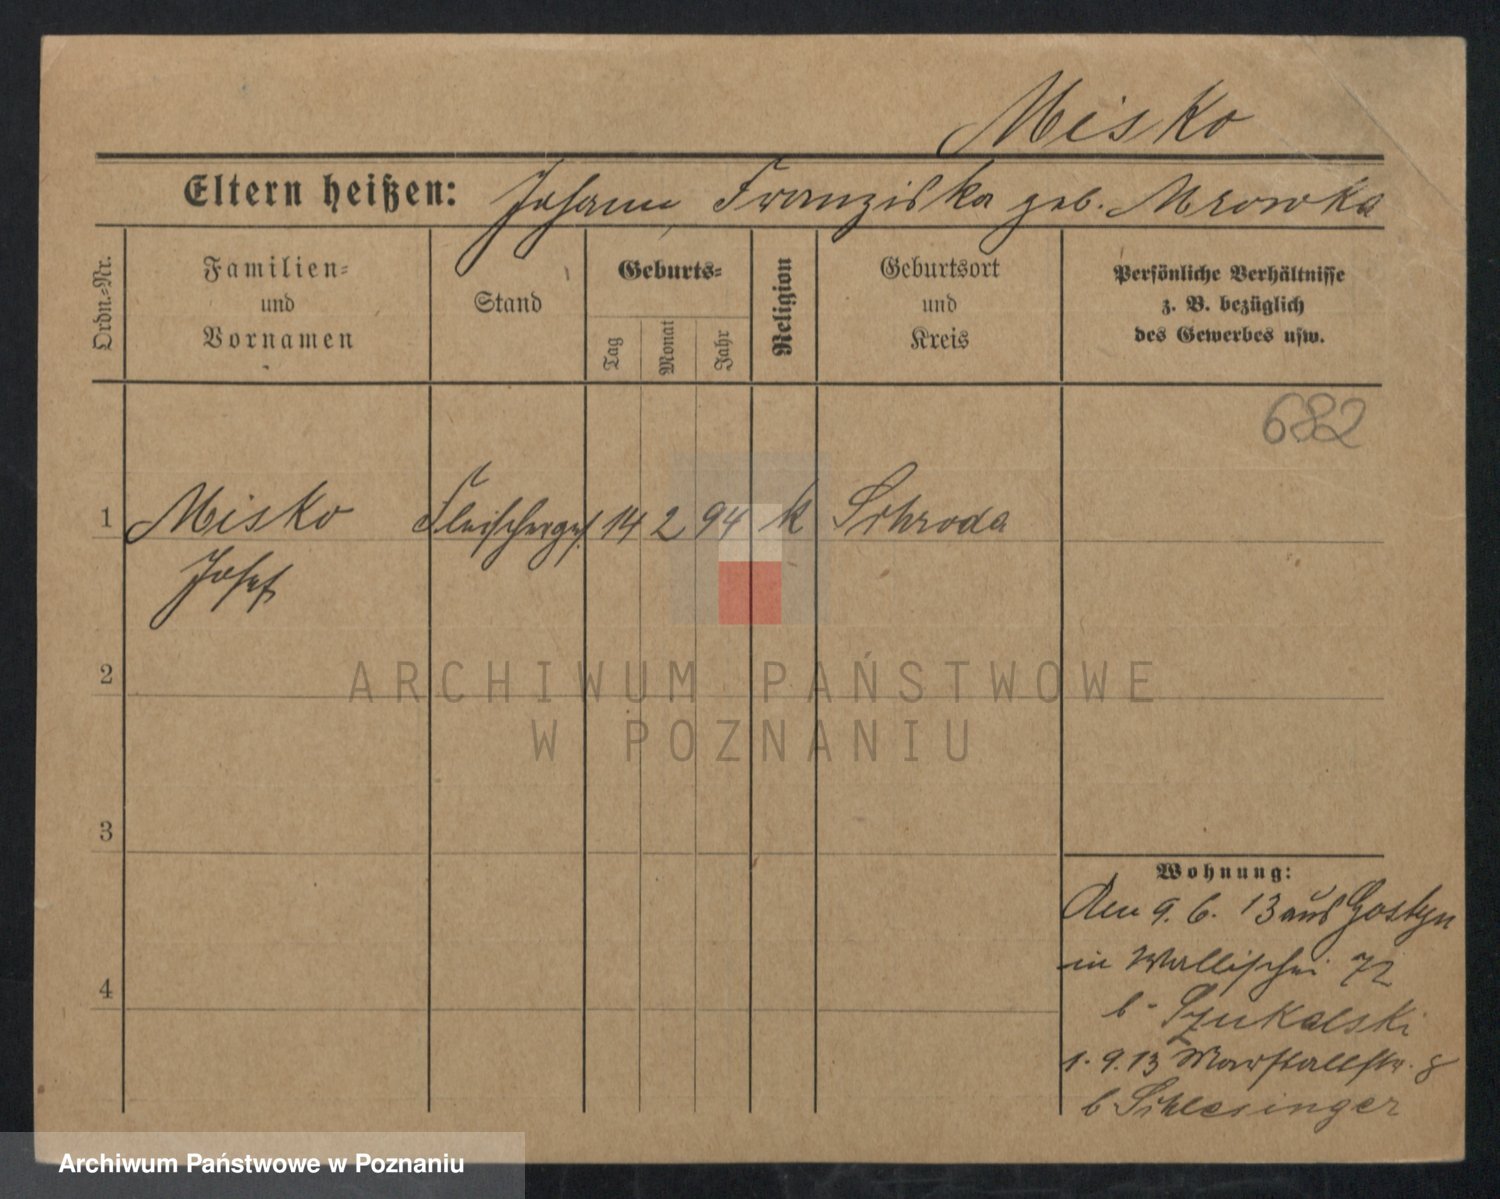 Misko
Eltern heißen: Johann Franziska geb. Mrowka
Ordn.=Nr.
Familien=
und
Vornamen
Stand
Geburts=
Tag
Monat
Jahr
Religion
Geburtsort
und
Kreis
Persönliche Verhältnisse
z. B. bezüglich
des Gewerbes usw.
682
1 Misko Fleischerges. 14 2 94 k Schroda
Josef
2
ARCHIWUM PAŃSTWOWE
W POZNANIU
3
4
Wohnung:
Den 9. 6. 13 aus Gostyn
in Wallischei 72
b. Szukalski
1. 9. 13 Marstallstr. 8
b Schlesinger
Archiwum Państwowe w Poznaniu